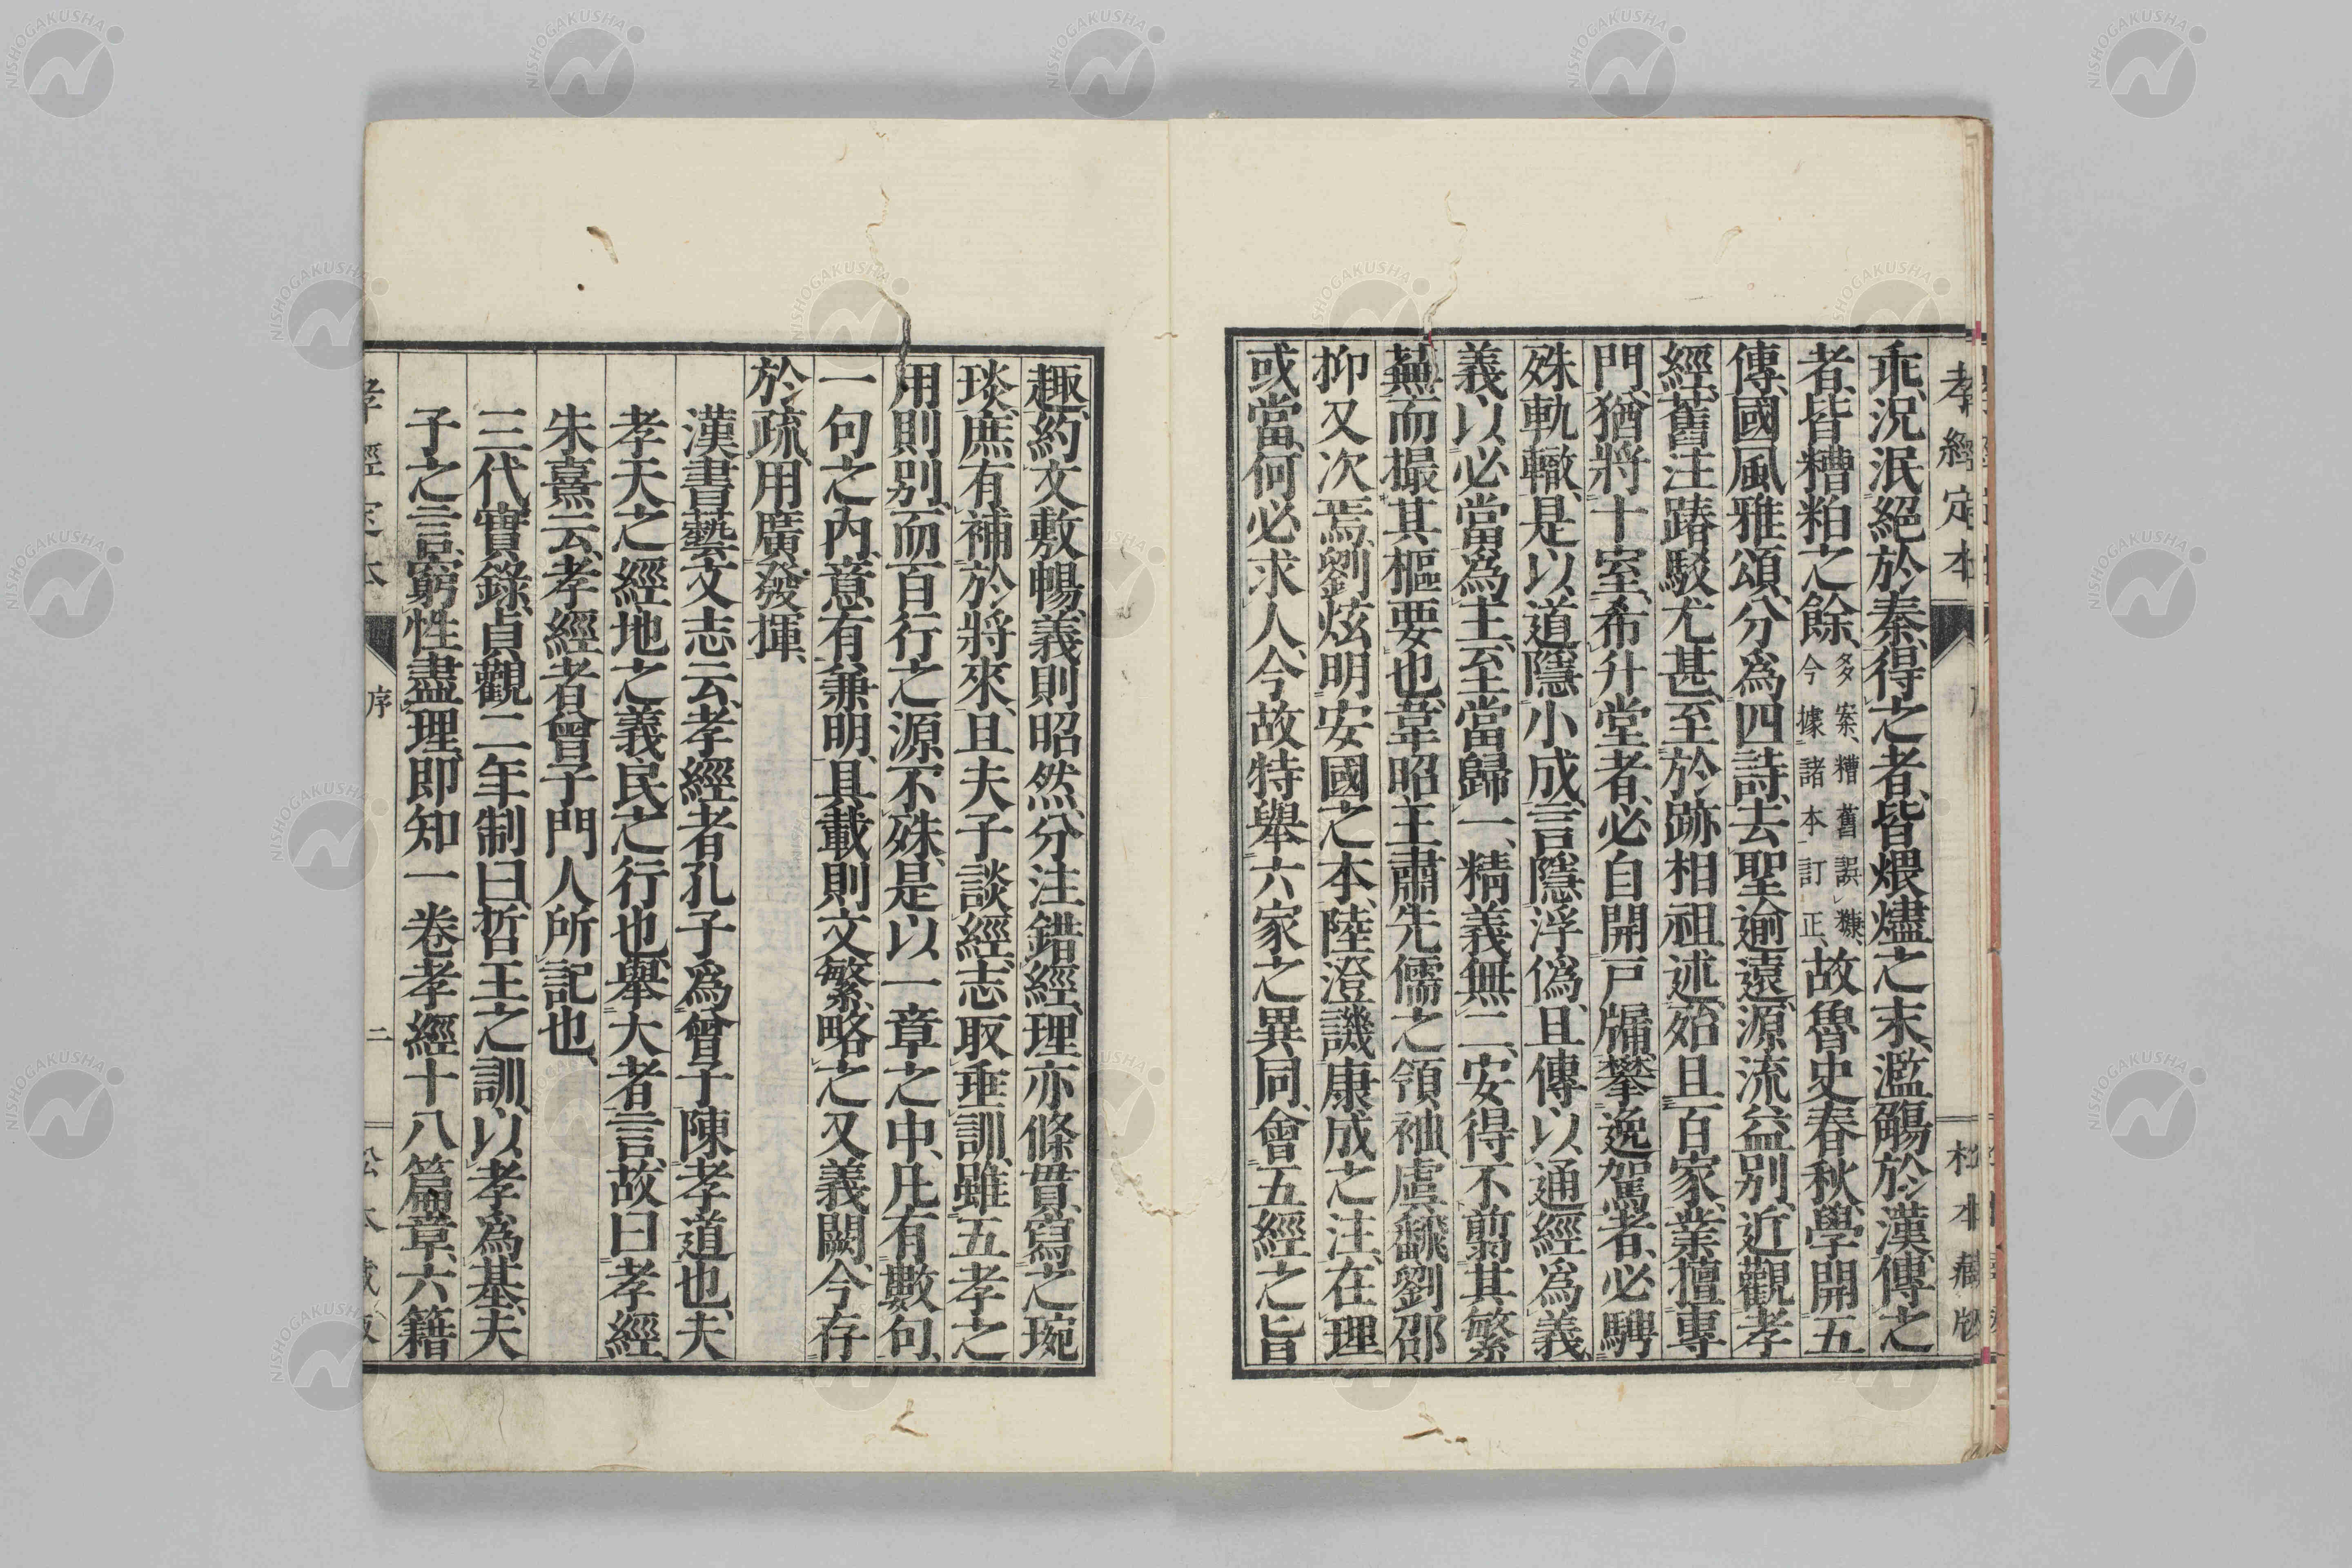 孝經定本
松本藏版
乖、況泯絕於秦、得之者、皆煨燼之末、濫觴於漢、傳之
者、皆糟粕之餘、
案、糟舊誤糠、
多今據諸本訂正、
故魯史春秋、學開五
傳、國風雅頌、分爲四詩、去聖逾遠、源流益別、近觀孝
經舊注、踳駁尤甚、至於跡相祖述、殆且百家、業擅專
門、猶將十室、希升堂者、必自開戸牖、攀逸駕者、必騁
殊軌轍、是以道隱小成、言隱浮僞、且傳以通經爲義、
義以必當爲主、至當歸一、精義無二、安得不翦其繁
蕪、而撮其樞要也、韋昭王肅、先儒之領袖、虞飜劉邵、
抑又次焉、劉炫明安國之本、陸澄譏康成之注、在理
或當、何必求人、今故特舉六家之異同、會五經之旨
趣、約文敷暢、義則昭然、分注錯經、理亦條貫、寫之琬
琰、庶有補於將來、且夫子談經、志取垂訓、雖五孝之
用則別、而百行之源不殊、是以一章之中、凡有數句、
一句之內、意有兼明、具載則文繁、略之又義闕、今存
於疏、用廣發揮、
漢書藝文志云、孝經者、孔子爲曾子陳孝道也、夫
孝天之經、地之義、民之行也、舉大者言、故曰孝經
朱熹云、孝經者、曾子門人所記也、
三代實錄、貞觀二年制曰、哲王之訓、以孝爲基、夫
子之言、窮性盡理、即知一卷孝經十八篇章、六籍
孝經定本
序
二
松本藏版